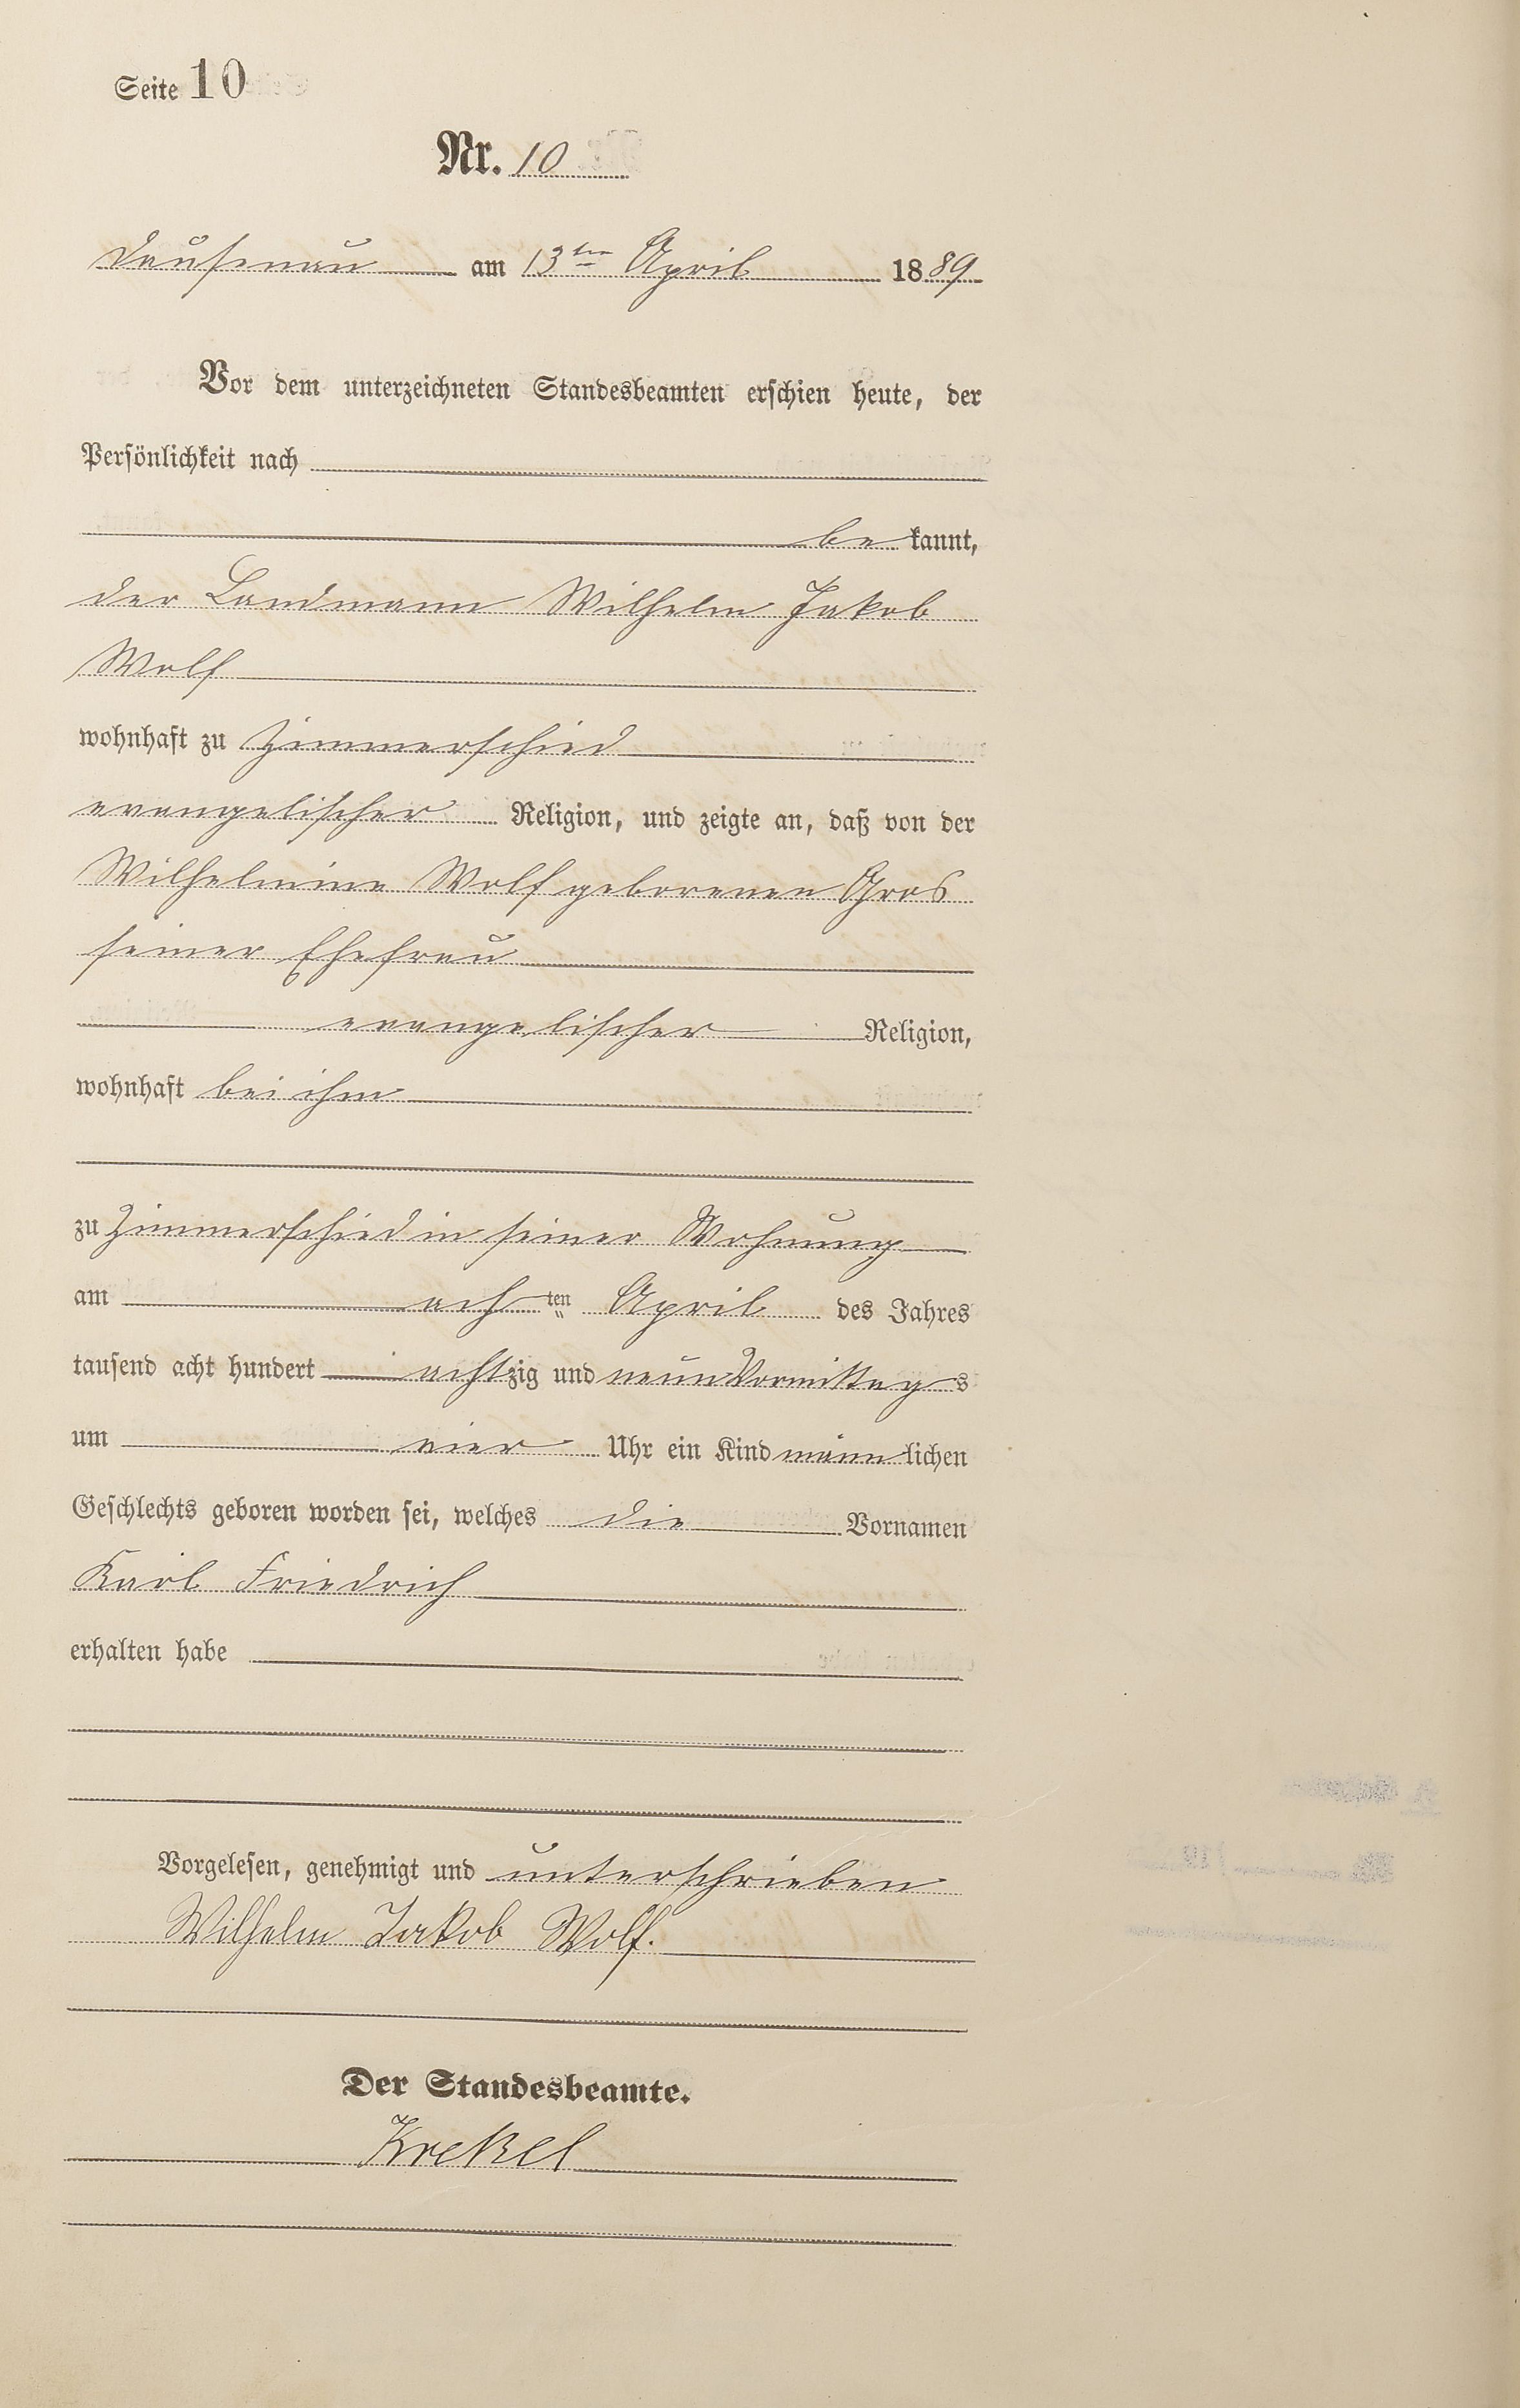 Seite 10
Nr. 10
Dausenau am 13ten April 1889
Vor dem unterzeichneten Standesbeamten erschien heute, der
Persönlichkeit nach
be kannt,
der Landmann Wilhelm Jakob
Wolf
wohnhaft zu Zimmerschied
evangelischer Religion, und zeigte an, daß von der
Wilhelmine Wolf geborenen Gros
seiner Ehefrau
evangelischer Religion,
wohnhaft bei ihm
zu Zimmerschied in seiner Wohnung
am achten April des Jahres
tausend acht hundert achtzig und neun Vormittags
um vier Uhr ein Kind männlichen
Geschlechts geboren worden sei, welches die Vornamen
Karl Friedrich
erhalten habe
Vorgelesen, genehmigt und unterschrieben
Wilhelm Jakob Wolf.
Der Standesbeamte.
Krekel